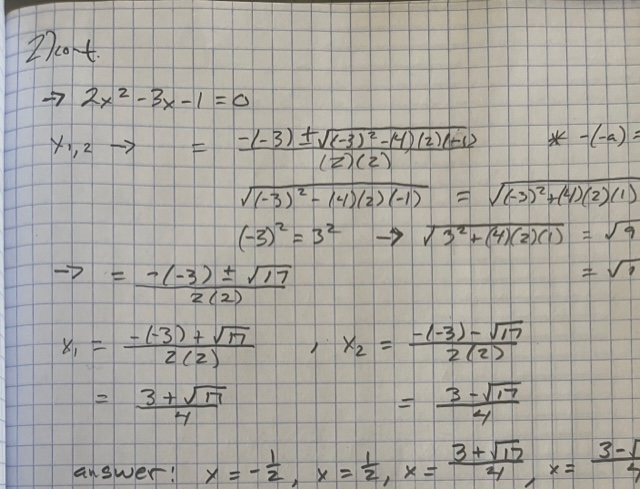 2) cont.
→ 2x² - 3x - 1 = 0
x₁,₂ → = (-(-3) ± √((-3)² - (4)(2)(-1)))/((2)(2)) * -(-a) =
√((-3)² - (4)(2)(-1)) = √((-3)² + (4)(2)(1)
(-3)² = 3² → √(3² + (4)(2)(1)) = √9
→ = (-(-3) ± √17)/(2(2)) = √1
x₁ = (-(-3) + √17)/(2(2)) , x₂ = (-(-3) - √17)/(2(2))
= (3 + √17)/4 = (3 - √17)/4
answer: x = -1/2, x = 1/2, x = (3 + √17)/4, x = (3 - √)/4